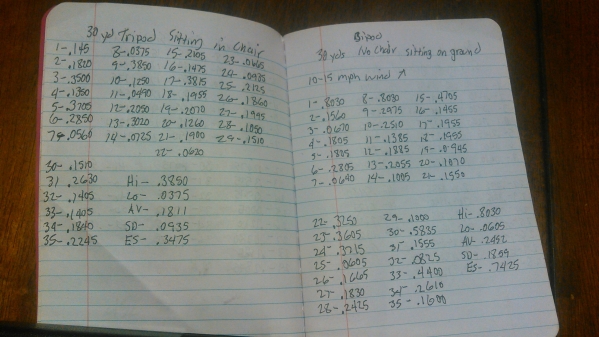 30 yds Tripod Sitting in Chair
1- .145 8- .0375 15- .2105 23- .0665
2- .1820 9- .3850 16- .1475 24- .0985
3- .3500 10- .1250 17- .3815 25- .2125
4- .1350 11- .0490 18- .1955 26- .1860
5- .3705 12- .2050 19- .2070 27- .1995
6- .2850 13- .3020 20- .1260 28- .1050
7- .0560 14- .0725 21- .1900 29- .1510
22- .0620
30- .1510
31- .2630 Hi- .3850
32- .1405 Lo- .0375
33- .1405 AV- .1811
34- .1840 SD- .0935
35- .2245 ES- .3475
Bipod
30 yds No Chair sitting on ground
10-15 mph wind ↗
1- .8030 8- .8030 15- .4705
2- .1560 9- .2975 16- .1455
3- .0670 10- .2510 17- .1955
4- .1805 11- .1385 18- .1955
5- .1805 12- .1885 15- .0985
6- .2805 13- .2055 20- .1070
7- .0640 14- .1005 21- .1550
22- .3250 29- .1000 Hi- .8030
23- .3605 30- .5835 Lo- .0605
24- .3715 31- .1555 AV- .2452
25- .0605 32- .0825 SD- .1809
26- .1665 33- .4400 ES- .7425
27- .1830 34- .2610
28- .2425 35- .1600